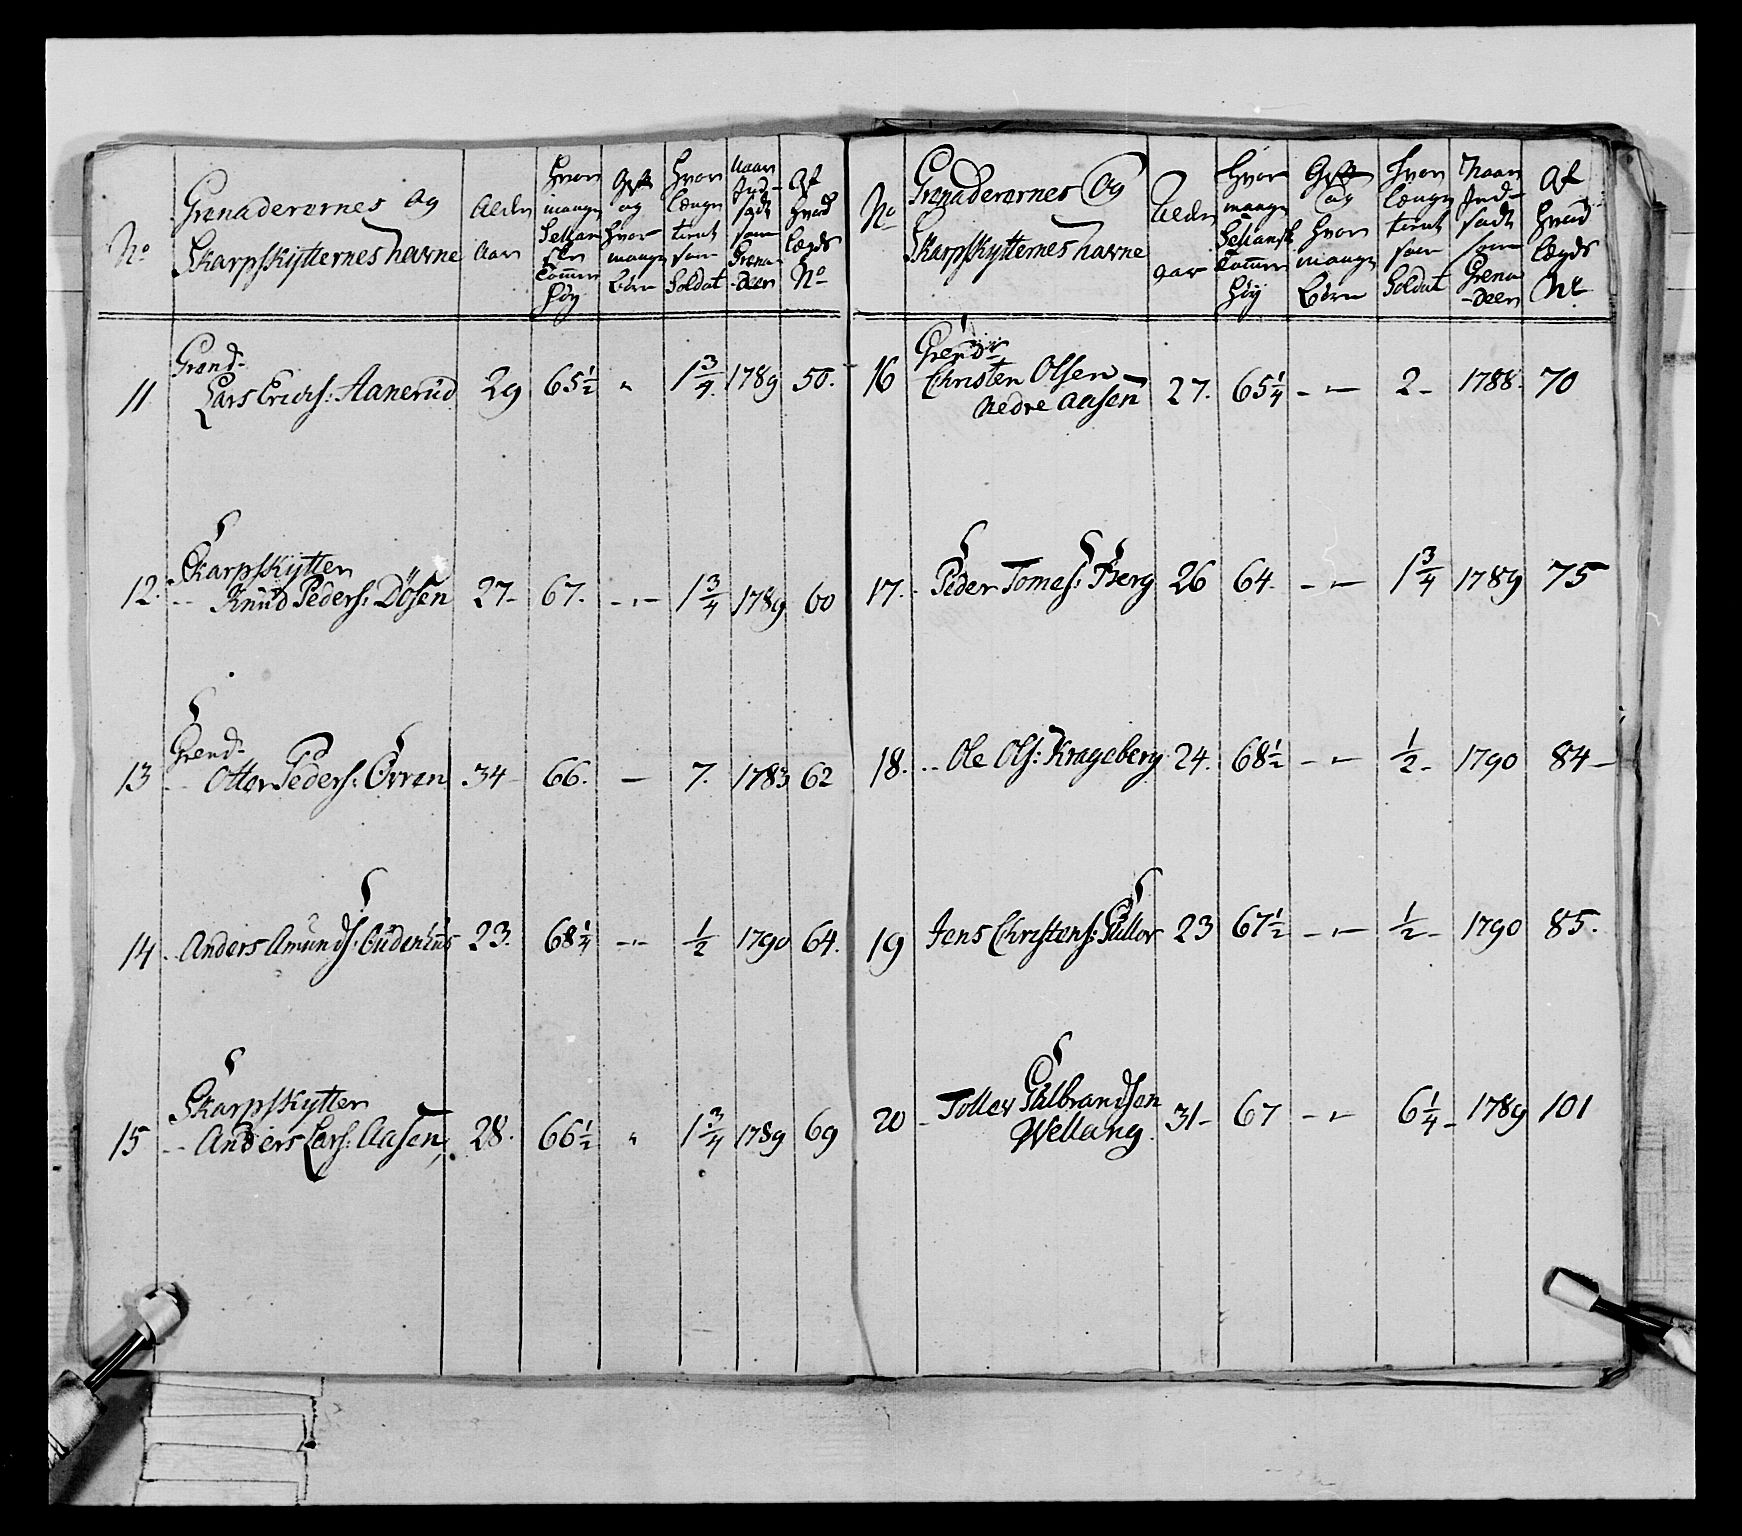 No
Grenaderernes og
Skarpskytternes Navne
Alder
Aar
Hvor
mange
Tommer
Høy
Gift
og
Hvor
mange
Børn
Hvor
længe
tient
som
Soldat
Naar
Ind-
sadt
som
Grena-
-deer
Af
Hvad
Lægds
No
11
Grend-
Lars Erichs: Aanerud
29
65½
"
1¾
1789
50.
12.
Skarpskytter
Knud Peders: Dösen
27-
67.
-"-
1¾
1789
60
13
Grend-
Otter Peders: Örren
34-
66.
-
7.
1783
62
14
Anders Amunds:
23.
68¼
-"-
½
1790
64.
15
Skarpskytter
Anders Lars: Aasen
28.
66½
"
1¾
1789
69
No
Grenaderernes og
Skarpskytternes Navne
Alder
aar
Hvor
mange
Tommer
Høy
Gift
og
Hvor
mange
Børn
Hvor
længe
tient
som
Soldat
Naar
Ind-
sadt
som
Grena
-deer
Af
Hvad
Lægds
Nr.
16
Grendr
Christen Olsen
Nedre Aasen
27.
65¼
-"-
2-
1788.
70
17.
Peder Tomes: Berg
26
64-
-"-
1¾
1789
75
18.
Ole Ols: Krageberg
24.
68½
-"-
½-
1790
84-
19
Jens Christens:
23
67½
-"-
½-
1790
85.
20
Tollev Gulbrandsen
Wellang.
31-
67
-"-
6¼-
1789
101